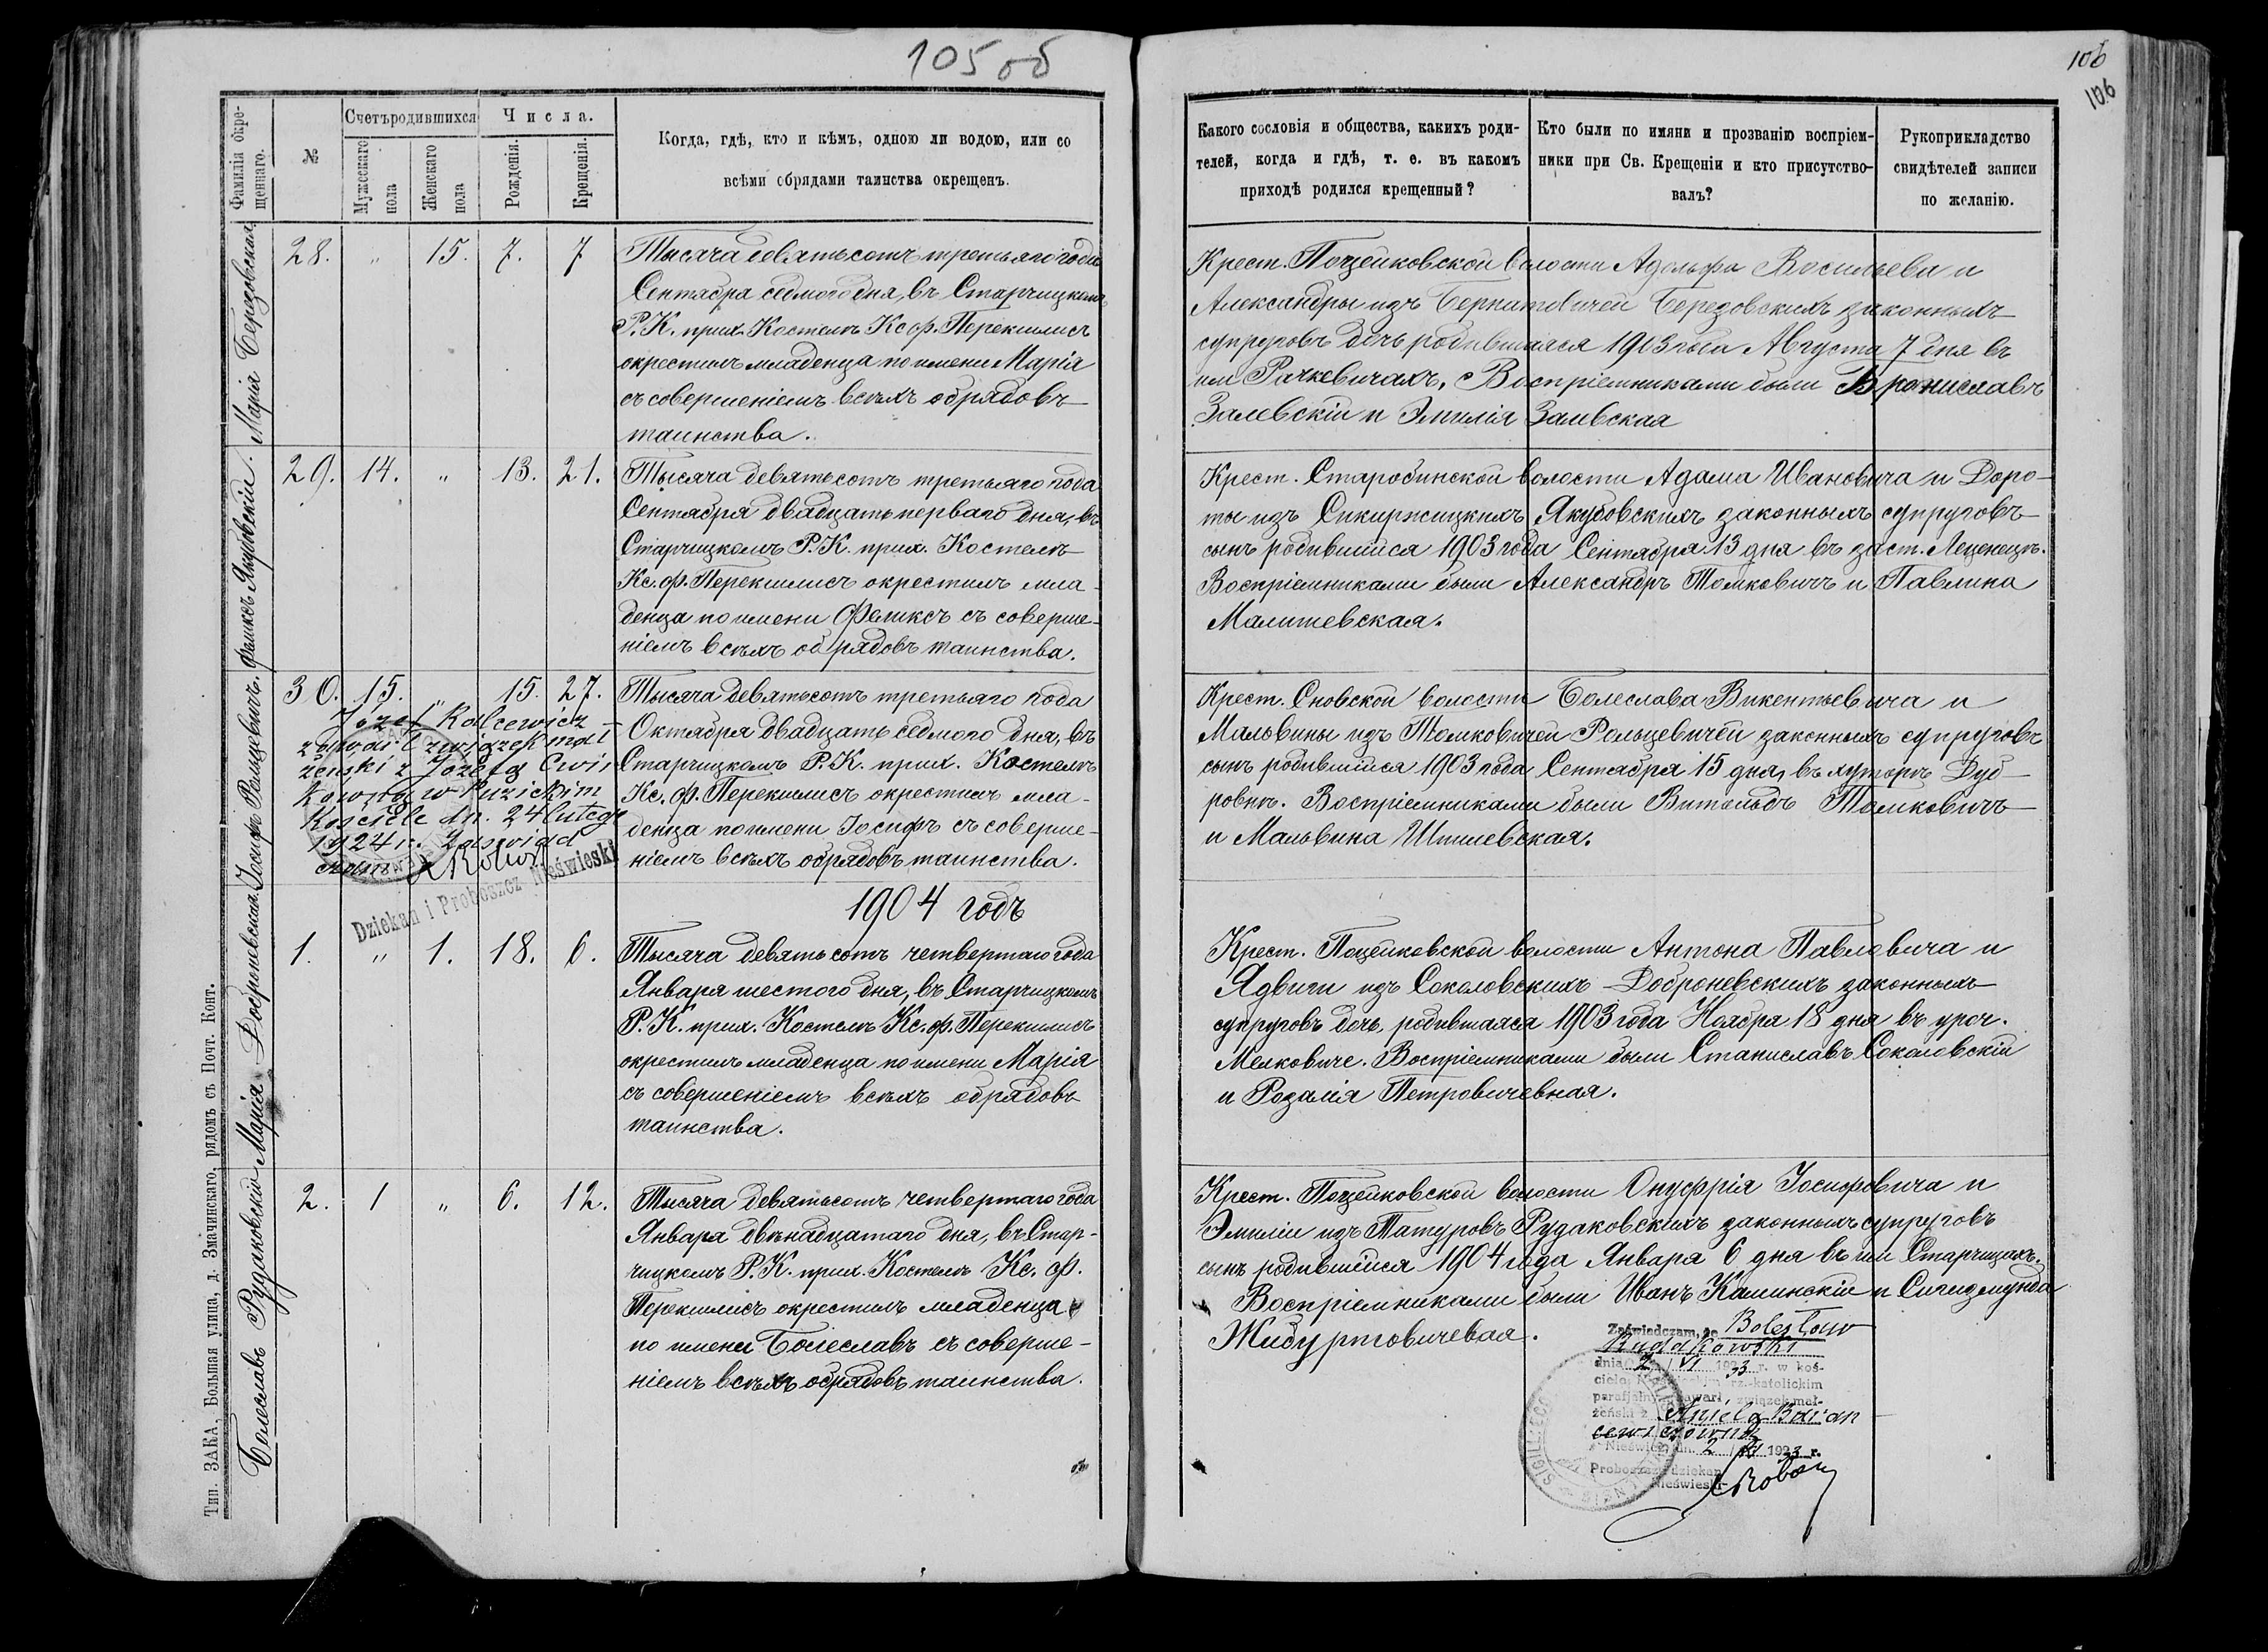 105 об
106
106
Фамилія окре-
щеннаго.
№
Счетъ родившихся
Мужескаго
пола
Женскаго
пола
Числа.
Рожденія.
Крещенія.
Когда, гдѣ, кто и кѣмъ, одною ли водою, или со
всѣми обрядами таинства окрещенъ.
Какого сословія и общества, какихъ роди-
телей, когда и гдѣ, т. е. въ какомъ
приходѣ родился крещенный?
Кто были по имяни и прозванію воспріем-
ники при Св. Крещеніи и кто присутство-
валъ?
Рукоприкладство
свидѣтелей записи
по желанію.
Марія Березовская
28. " 15. 7. 7
Тысяча девятьсотъ третьяго года
Сентября седмого дня, въ Старчицкомъ
Р. К. прих. Костелѣ Кс. ф. Перекшлисъ
окрестилъ младенца по имени Марія
съ совершеніемъ всѣхъ обрядовъ
таинства.
Крест. Поцейковской волости Адольфа Васильева и
Александры изъ Бернатовичей Березовскихъ законныхъ
супруговъ дочь родившаяся 1903 года Августа 7 дня въ
им Рачкевичахъ. Воспріемниками были Брониславъ
Залевскій и Эмилія Залевская
Феликсъ Якубовскій.
29. 14. " 13. 21.
Тысяча девятьсотъ третьяго года
Сентября двадцать перваго дня, въ
Старчицкомъ Р. К. прих. Костелѣ
Кс. ф. Перекшлисъ окрестилъ мла-
денца по имени Феликсъ съ соверше-
ніемъ всѣхъ обрядовъ таинства.
Крест. Старобинской волости Адама Ивановича и Доро-
ты изъ Сикиржицкихъ Якубовскихъ законныхъ супруговъ
сынъ родившійся 1903 года Сентября 13 дня въ заст. Леценецъ.
Воспріемниками были Александръ Томковичъ и Павлина
Малишевская.
Іосифъ Рольцевичъ.
30. 15. " 15. 27.
Józef Rolcewicz
związek mał
żeński z Józefą Ćwir
kówną w
kościele dn. 24 lutego
1924 r. Zaświad
czam
Dziekan i Proboszcz Nieświeski
Тысяча девятьсотъ третьяго года
Октября двадцать седмого дня, въ
Старчицкомъ Р. К. прих. Костелѣ
Кс. ф. Перекшлисъ окрестилъ мла-
денца по имени Іосифъ съ соверше-
ніемъ всѣхъ обрядовъ таинства.
Крест. Сновской волости Болеслава Викентьевича и
Мальвины изъ Томковичей Рольцевичей законныхъ супруговъ
сынъ родившійся 1903 года Сентября 15 дня, въ хуторѣ Дуб
ровкѣ. Воспріемниками были Витольдъ Томковичъ
и Мальвина Шпилевская.
1904 годъ
Марія Доброневская
1. " 1. 18. 6.
Тысяча девятьсотъ четвертаго года
Января шестого дня, въ Старчицкомъ
Р. К. прих. Костелѣ Кс. ф. Перекшлисъ
окрестилъ младенца по имени Марія
съ совершеніемъ всѣхъ обрядовъ
таинства.
Крест. Поцейковской волости Антона Павловича и
Ядвиги изъ Соколовскихъ - Доброневскихъ законныхъ
супруговъ дочь, родившаяся 1903 года Ноября 18 дня въ уроч.
Мелковиче. Воспріемниками были Станиславъ Соколовскій
и Розалія Петровичевная.
Болеславъ Рудаковскій
2. 1 " 6. 12.
Тысяча девятьсотъ четвертаго года
Января двѣнадцатаго дня, въ Стар-
чицкомъ Р. К. прих. Костелѣ Кс. ф.
Перекшлисъ окрестилъ младенца
по имени Болеславъ съ соверше-
ніемъ всѣхъ обрядовъ таинства.
Крест. Поцейковской волости Онуфрія Іосифовича и
Эмиліи изъ Татуровъ Рудаковскихъ законныхъ супруговъ
сынъ родившійся 1904 года Января 6 дня въ им Старчицахъ.
Воспріемниками были Иванъ Каминскій и Сигизмунда
Жибуртовичевая.
Zaświadczam, że Bolesław
Rudakowski
dnia 2 VI 1933 r. w koś-
ciele rz.-katolickim
parafjalnym zawarł związek mał-
żeński z Anielą Baran
cewiczówną
Nieśwież dn. 2 VI 1933 r.
Proboszcz dziekan
Nieświeski
Тип. ЗАКА, Большая улица, д. Змачинскаго, рядомъ съ Почт. Конт.